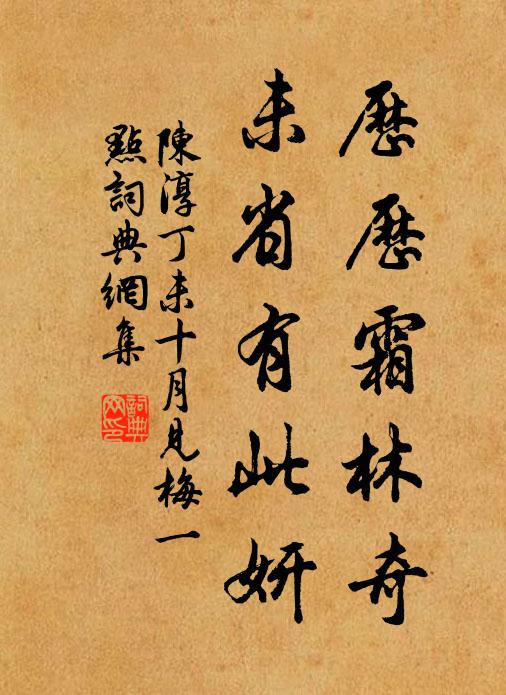 歷歷霜林奇
未省有此妍
陳淳丁未十月見梅一
點詞典網集
詞典網印